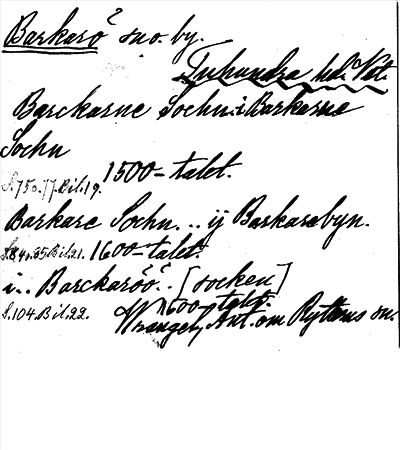 Barkarö sno. by.
Tuhundra hd. Vst.
Barckarne Sochn. i Barkarne
Sochn
1500-talet.
S. 750. 77. Bil. 19.
Barkare Sochn... ij Barkarebyn.
S. 84. 85 Bil. 21. 1600-talet.
i.. Barckaröö.. [socken]
1600-talet.
S. 104. Bil. 22. Wrangel, Ant. om Rytterns sn.